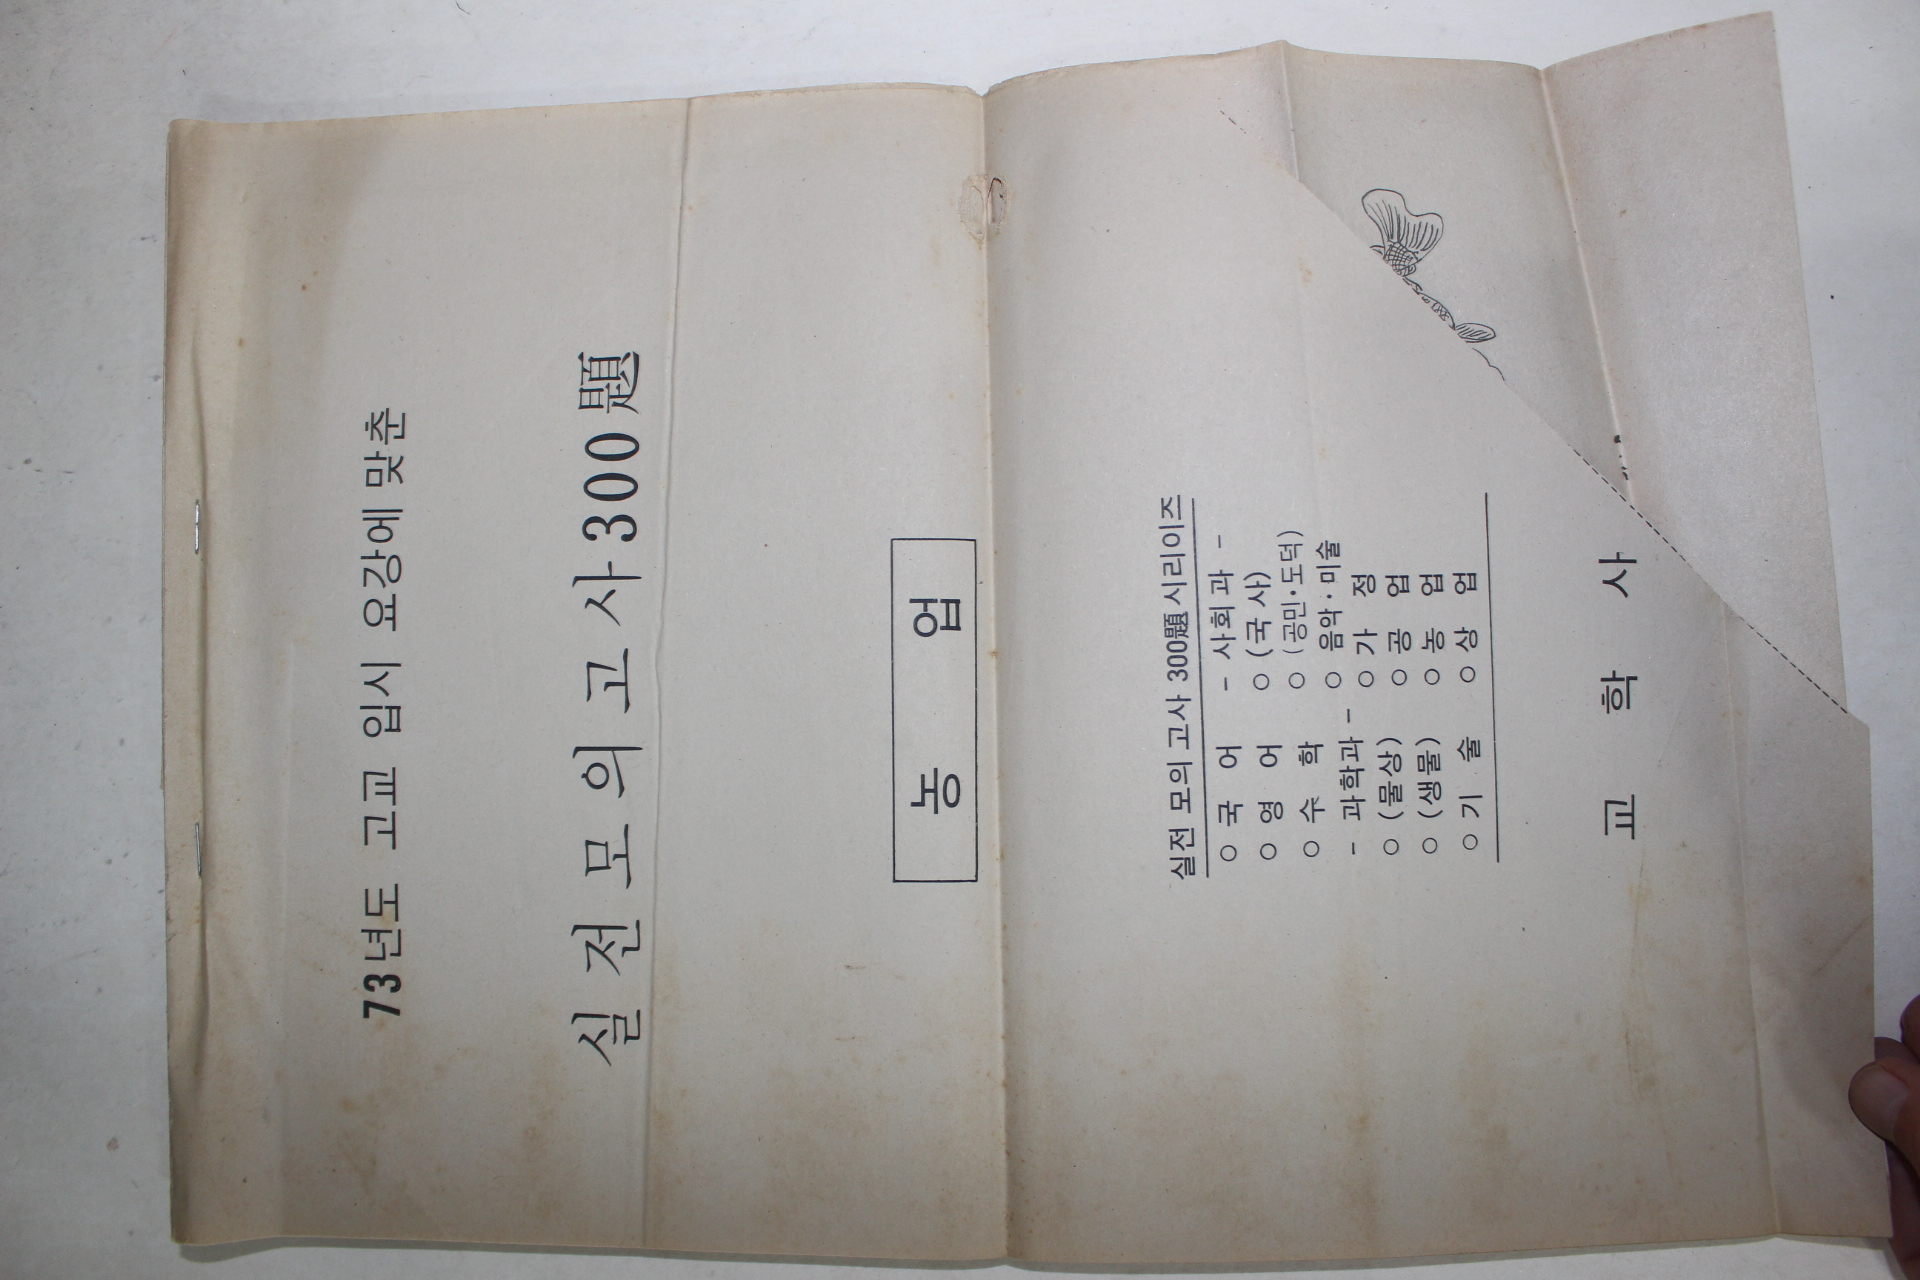 73년도 고교 입시 요강에 맞춘
실전모의고사300題
농 업
실전 모의 고사 300題 시리이즈
○ 국 어
○ 영 어
○ 수 학
- 과학과 -
○ (물상)
○ (생물)
○ 기 술
- 사회과 -
○ (국사)
○ (공민·도덕)
○ 음악·미술
○ 가 정
○ 공 업
○ 농 업
○ 상 업
교 학 사